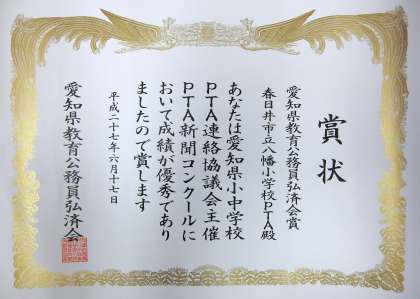 賞状
愛知県教育公務員弘済会賞
春日井市立八幡小学校PTA殿
あなたは愛知県小中学校
PTA連絡協議会主催
PTA新聞コンクールに
おいて成績が優秀であり
ましたので賞します
平成二十七年六月十七日
愛知県教育公務員弘済会